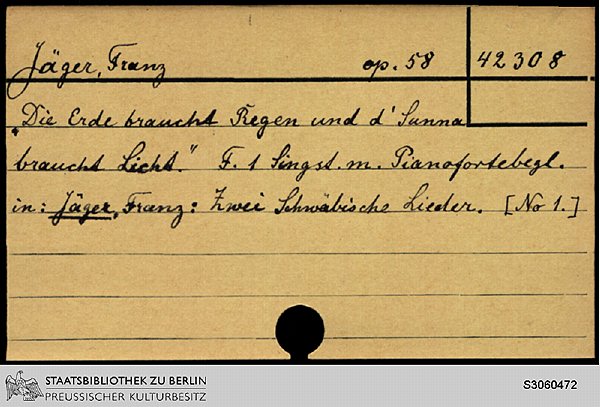 Jäger, Franz op. 58 42308
„Die Erde braucht Regen und d' Sunna
braucht Licht." F. 1 Singst. m. Pianofortebegl.
in: Jäger, Franz: Zwei Schwäbische Lieder. [No 1.]
STAATSBIBLIOTHEK ZU BERLIN
PREUSSISCHER KULTURBESITZ
S3060472